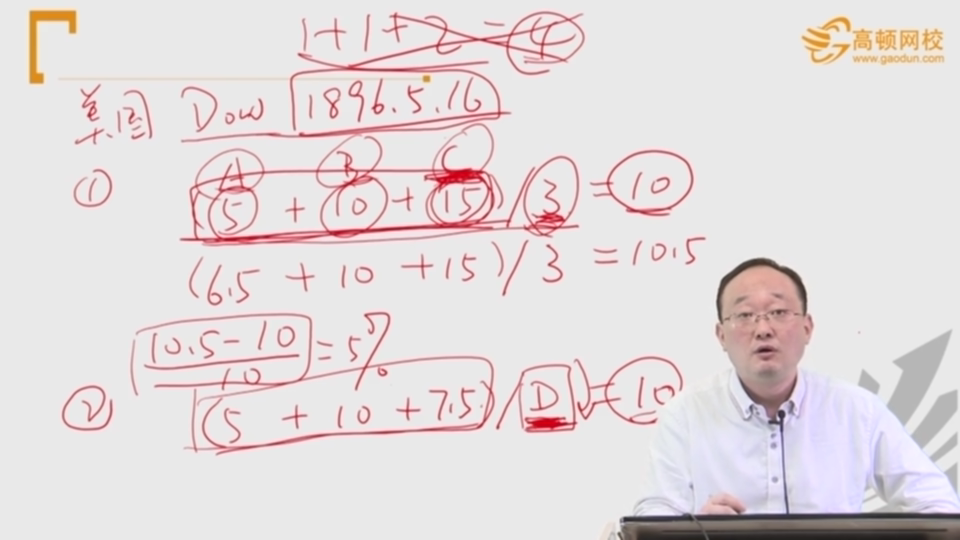 1+1+2=4
高顿网校
www.gaodun.com
美国 Dow 1896.5.16
A B C
① (5 + 10 + 15)/3 = 10
(6.5 + 10 + 15)/3 = 10.5
10.5-10
10
=5%
② (5 + 10 + 7.5)/D = 10